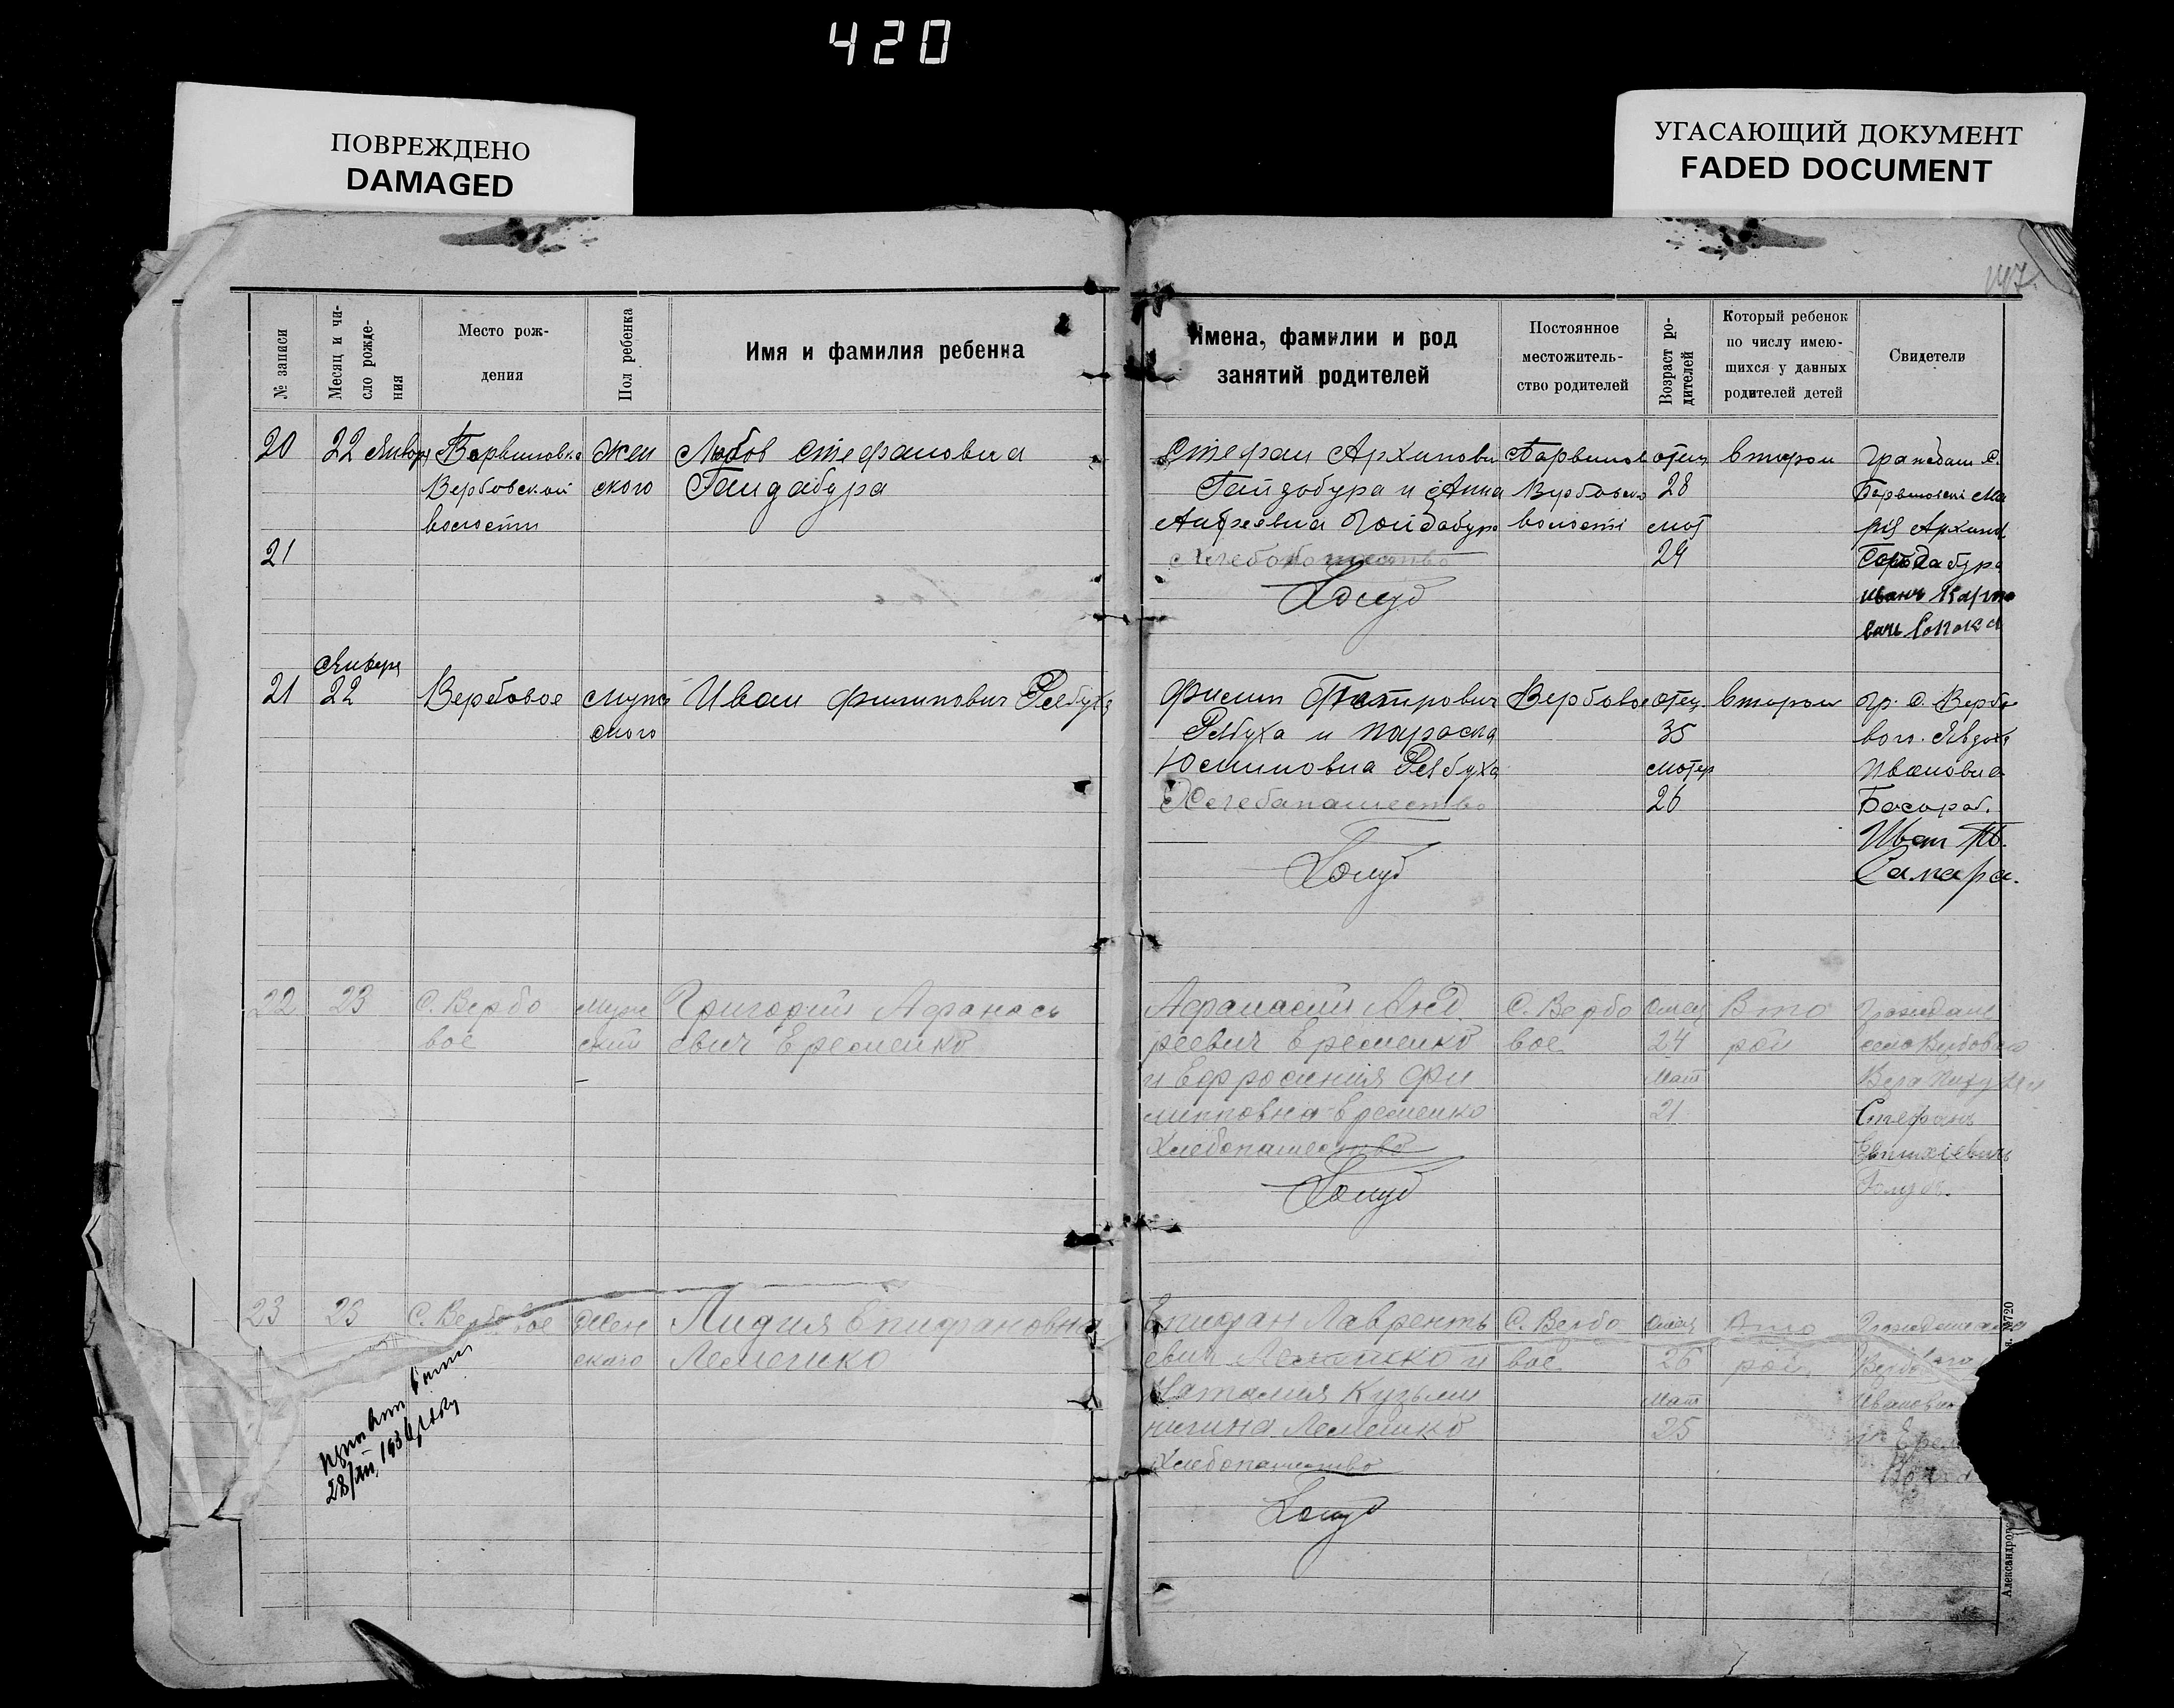 420
ПОВРЕЖДЕНО
DAMAGED
УГАСАЮЩИЙ ДОКУМЕНТ
FADED DOCUMENT
147.
№ записи
Месяц и чи-
сло рожде-
ния
Место рож-
дения
Пол ребенка
Имя и фамилия ребенка
Имена, фамилии и род
занятий родителей
Постоянное
местожитель-
ство родителей
Возраст ро-
дителей
Который ребенок
по числу имею-
щихся у данных
родителей детей
Свидетели
20
22 Январ
Барвиновка
Вербовской
волости
жен
ского
Любов Стефановна
Гайдабура
Стефан Архипови
Гайдобура и Анна
Гойдабура
Хлебопашество
Голуб
Барвинов
Вербовско
волости
отец
28
мат
29
втором
Граждан с.
Ма
рія Архип
Гайдабура
Иванъ Карпо
вичъ
21
Января
21
22
Вербовое
Мужс
ского
Иван Филипович Рябуха
Филип Петрович
Рябуха и Параска
Рябуха
Хлебапашество
Голуб
Вербовое
отец
35
матер
26
втором
гр. с. Вербо
вого. Явдоха
Ивановна
Басараб.
Иван
Самара.
22
23
С. Вербо
вое
Муж
ский
Григорий Афанась
евич Еременко
Афанасий Анд
реевич Еременко
и Ефросиния Фи
липповна Еременко
Хлебопашество
Голуб
С. Вербо
вое
Отец
24
Мат
21
Вто
рой
Граждане
село Вербового
Вера
Стефанъ
Евтихіевичъ
Голубъ.
23
23
С. Вербовое
Жен
скаго
Лидия Епифановна
Лемешко
Епифан Лавренть
евич Лемешко и
Наталия Кузьми
нична Лемешко
Хлебопашество
Голуб
С. Вербо
вое
Отец
26
Мат
25
Вто
рой
Ивановна
28/XII 1936 року
№720
Александров